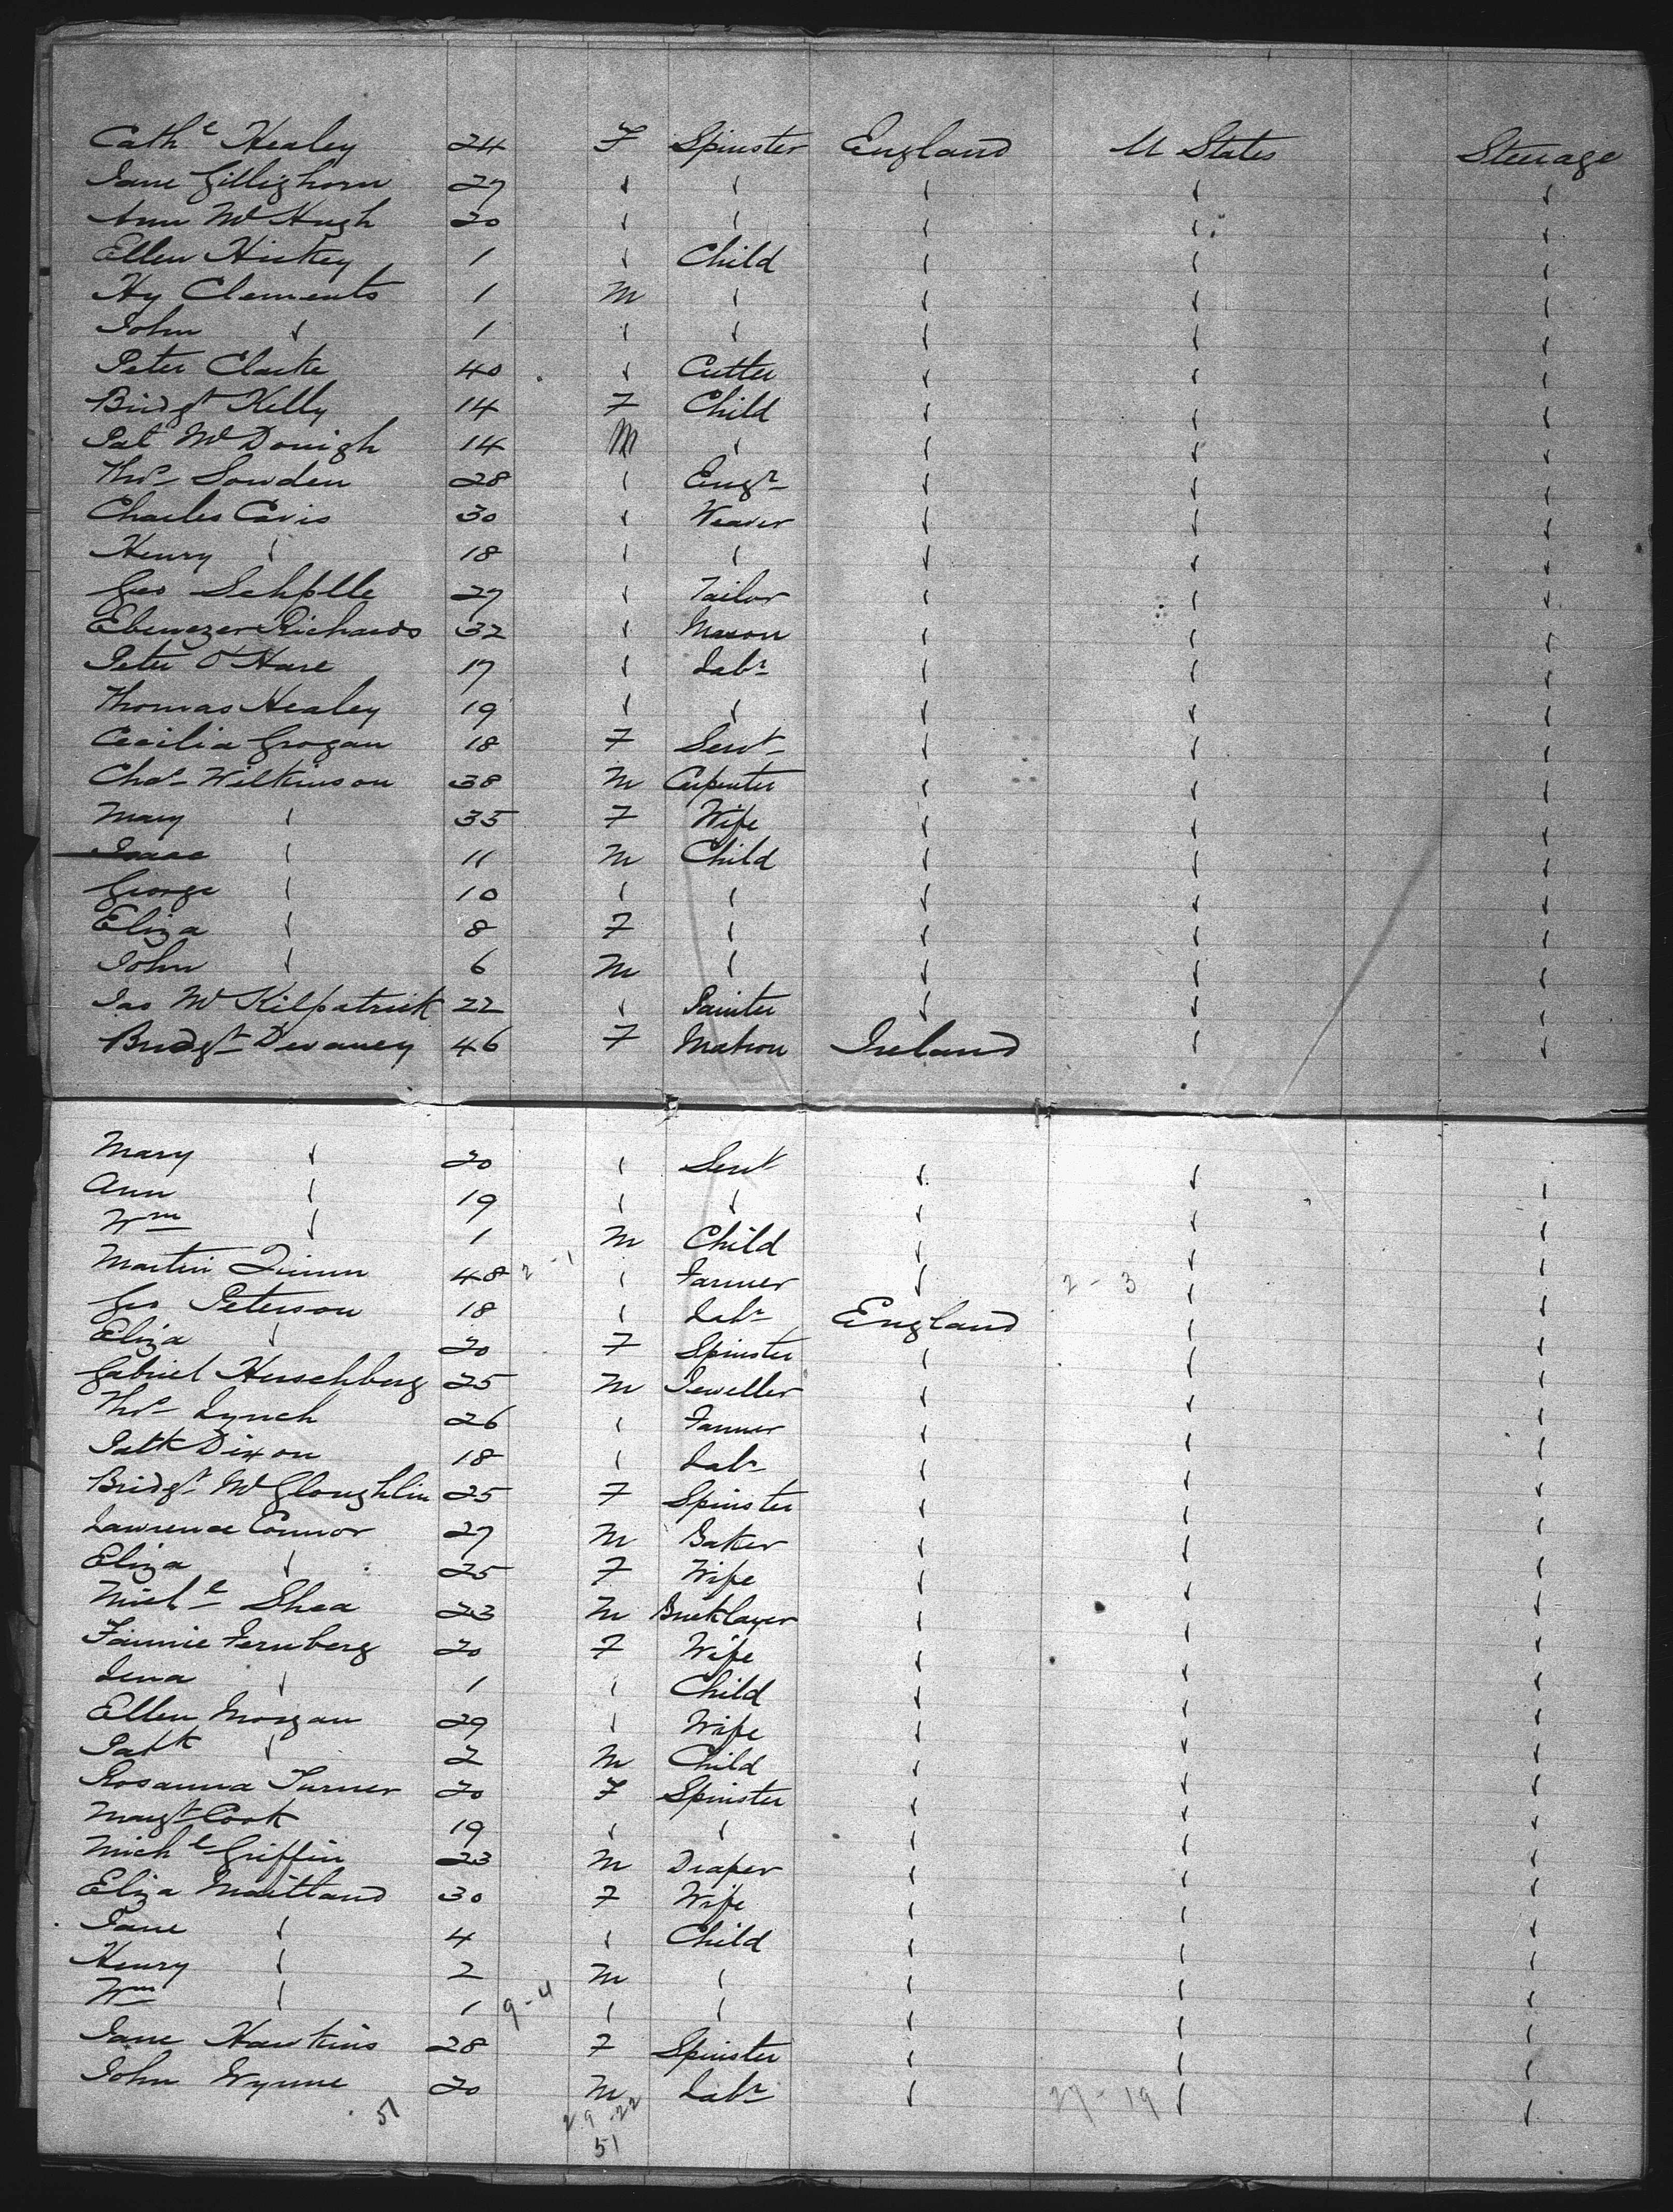 Cathe Healey 24 F Spinster England U States Steerage
Jane Gillighorn 27 " " " " "
Ann McHugh 20 " " " " "
Ellen Hickey 1 " Child " " "
Hy Clements 1 M " " " "
John " 1 " " " " "
Peter Clarke 40 " Cutter " " "
Bridgt Kelly 14 F Child " " "
Pat McDonigh 14 M " " " "
Thos Sowden 28 " Engr " " "
Charles Cavis 30 " Weaver " " "
Henry " 18 " " " " "
Geo 27 " Tailor " " "
Ebenezer Richards 32 " Mason " " "
Peter O'Hare 17 " Labr " " "
Thomas Healey 19 " " " " "
Cecilia Grogan 18 F Servt " " "
Chas Wilkinson 38 M Carpenter " " "
Mary " 35 F Wife " " "
Isaac " 11 M Child " " "
George " 10 " " " " "
Eliza " 8 F " " " "
John " 6 M " " " "
Jas McKilpatrick 22 " Painter " " "
Bridgt Devaney 46 F Matron Ireland " "
Mary " 20 " Servt " " "
Ann " 19 " " " " "
Wm " 1 M Child " " "
Martin Quinn 48 2-1 " Farmer " 2-3 " "
Geo Peterson 18 " Labr England " "
Eliza " 20 F Spinster " " "
Gabriel Herschberg 25 M Jeweller " " "
Thos Lynch 26 " Farmer " " "
Patk Dixon 18 " Labr " " "
Bridgt McGloughlin 25 F Spinster " " "
Lawrence Connor 27 M Baker " " "
Eliza " 25 F Wife " " "
Michl Shea 23 M Bricklayer " " "
Fannie Fernberg 20 F Wife " " "
Lena " 1 " Child " " "
Ellen Morgan 29 " Wife " " "
Patk " 2 M Child " " "
Rosanna Turner 20 F Spinster " " "
Margt Cook 19 " " " " "
Michl Griffin 23 M Draper " " "
Eliza Maitland 30 F Wife " " "
Jane " 4 " Child " " "
Henry " 2 M " " " "
Wm " 1 9-4 " " " " "
Jane Hawkins 28 F Spinster " " "
John Wynne 20 M Labr " 27-19 " "
51 29-22
51